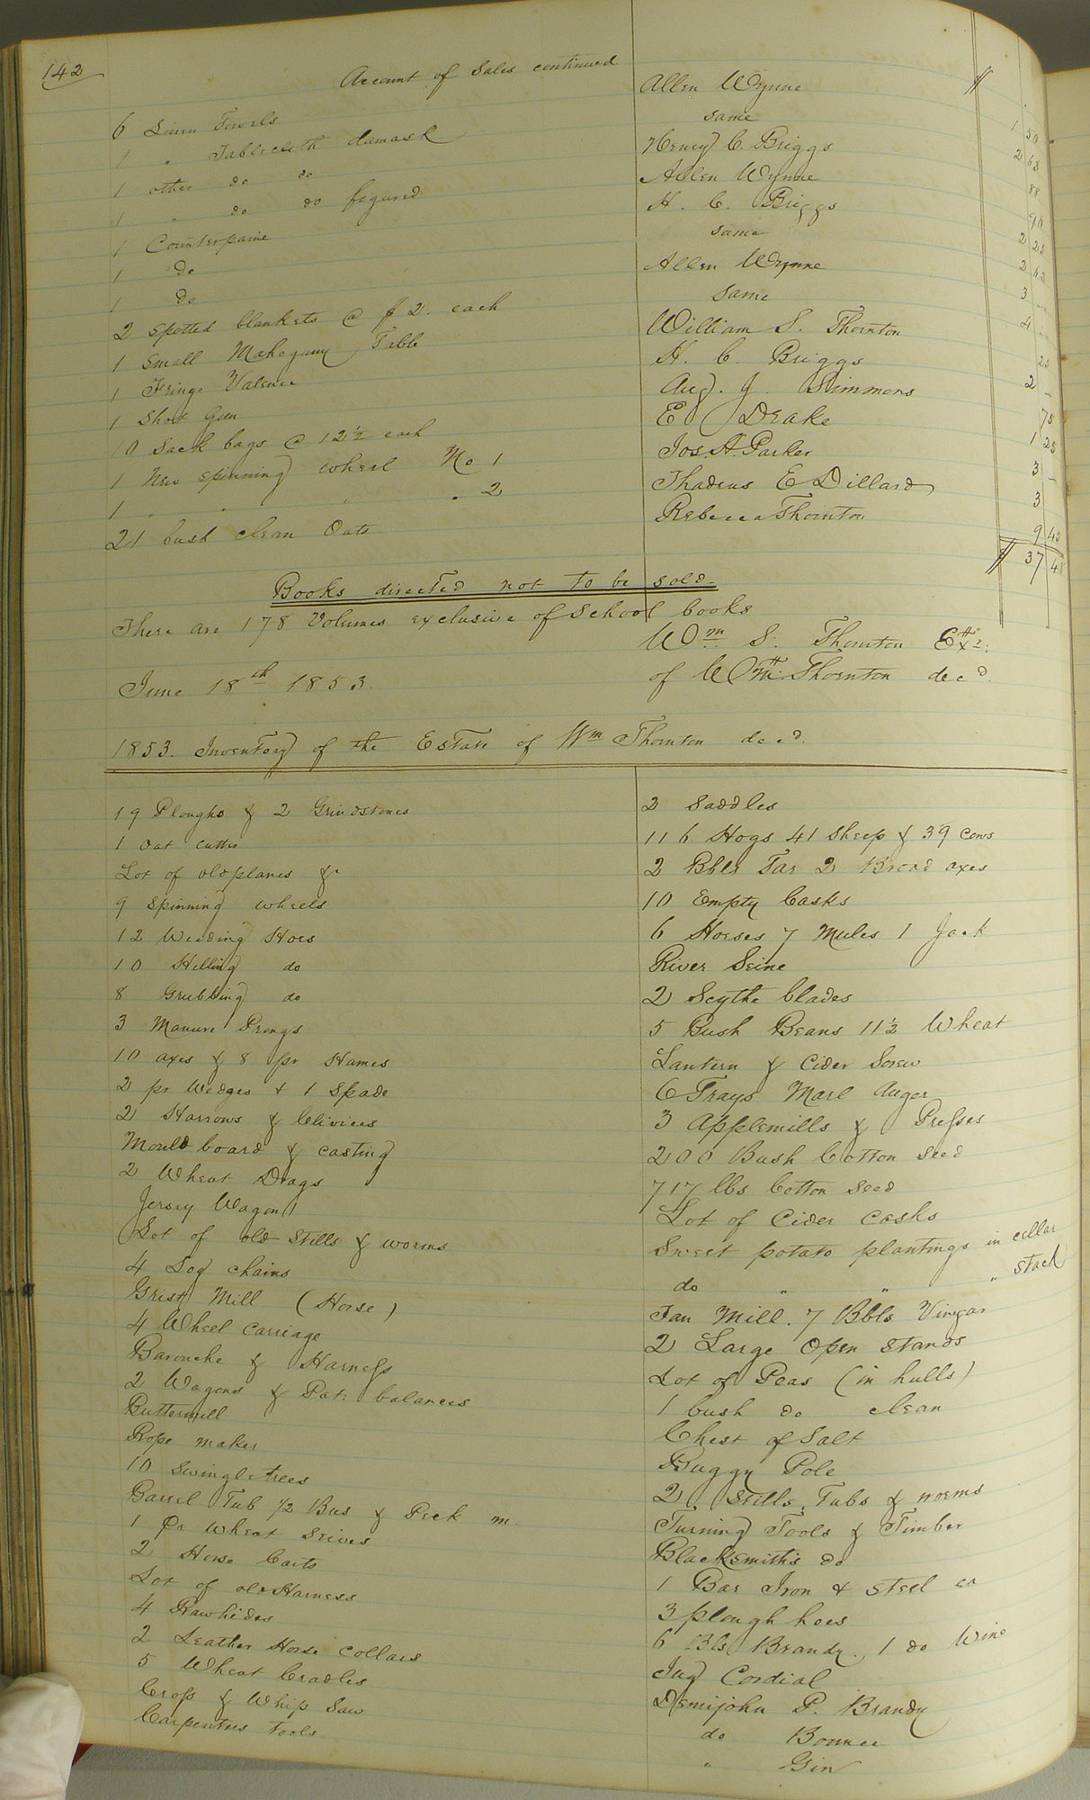 142
Account of Sales continued
6 Linen Towels Allen Wynne $ 1 50
1 " Tablecloth damask same 2 63
1 other do do Henry C. Briggs 88
1 " do do figured Allen Wynne 90
1 Counterpaine H. C. Briggs 2 25
1 do same 2 62
1 do Allen Wynne 3 —
2 spotted blankets @ $2. each same 4 —
1 small Mahogany Table William S. Thornton 25
1 Fringe Valence H. C. Briggs 2 —
1 Shot Gun Aug. J. Simmons 75
10 Sack bags @ 12½ each E Drake 1 25
1 New spinning wheel No 1 Jos. A. Parker 3 —
1 " " " " 2 Thadeus E Dillard 3
21 bush clean Oats Rebecca Thornton 9 45
$ 37 48
Books directed not to be sold.
There are 178 Volumes exclusive of School books
Wm S. Thornton Extr.
June 18th 1853. of Wm. Thornton decd.
1853. Inventory of the Estate of Wm Thornton decd.
19 Ploughs & 2 Grindstones
1 Oat cutter
Lot of old planes &c
9 Spinning wheels
12 Weeding Hoes
10 Hilling do
8 Grubbing do
3 Manure Prongs
10 axes & 8 pr Hames
2 pr Wedges + 1 Spade
2 Harrows & Clivices
Mould board & casting
2 Wheat Drags
Jersey Wagon
Lot of old Stills & worms
4 Log chains
Grist Mill (Horse)
4 Wheel carriage
Barouche & Harness
2 Wagons & Pat: balances
Buttermill
Rope maker
10 Swingletrees
Barrel Tub ½ Bus & Peck m.
1 Pr Wheat Seives
2 Horse Carts
Lot of old Harness
4 Rawhides
2 Leather Horse collars
5 Wheat Cradles
Cross & Whip Saw
Carpenters tools
2 Saddles
116 Hogs 41 Sheep & 39 Cows
2 Bbls Tar 2 Broad axes
10 Empty Casks
6 Horses 7 Mules 1 Jack
River Seine
2 Scythe blades
5 Bush Beans 11½ Wheat
Lantern & Cider Screw
6 Trays Marl Auger
3 Applemills & Presses
200 Bush Cotton seed
717 lbs Cotton seed
Lot of Cider casks
Sweet potato plantings in cellar
do " " " stack
Fan Mill. 7 Bbls Vinegar
2 Large Open stands
Lot of Peas (in hulls)
1 bush do clean
Chest of Salt
Buggy Pole
2 Stills, Tubs & worms
Turning Tools & Timber
Blacksmith's do
1 Bar Iron & steel
3 plough hoes
6 Bls Brandy, 1 do Wine
Jug Cordial
Demijohn P. Brandy
do Bounce
" Gin